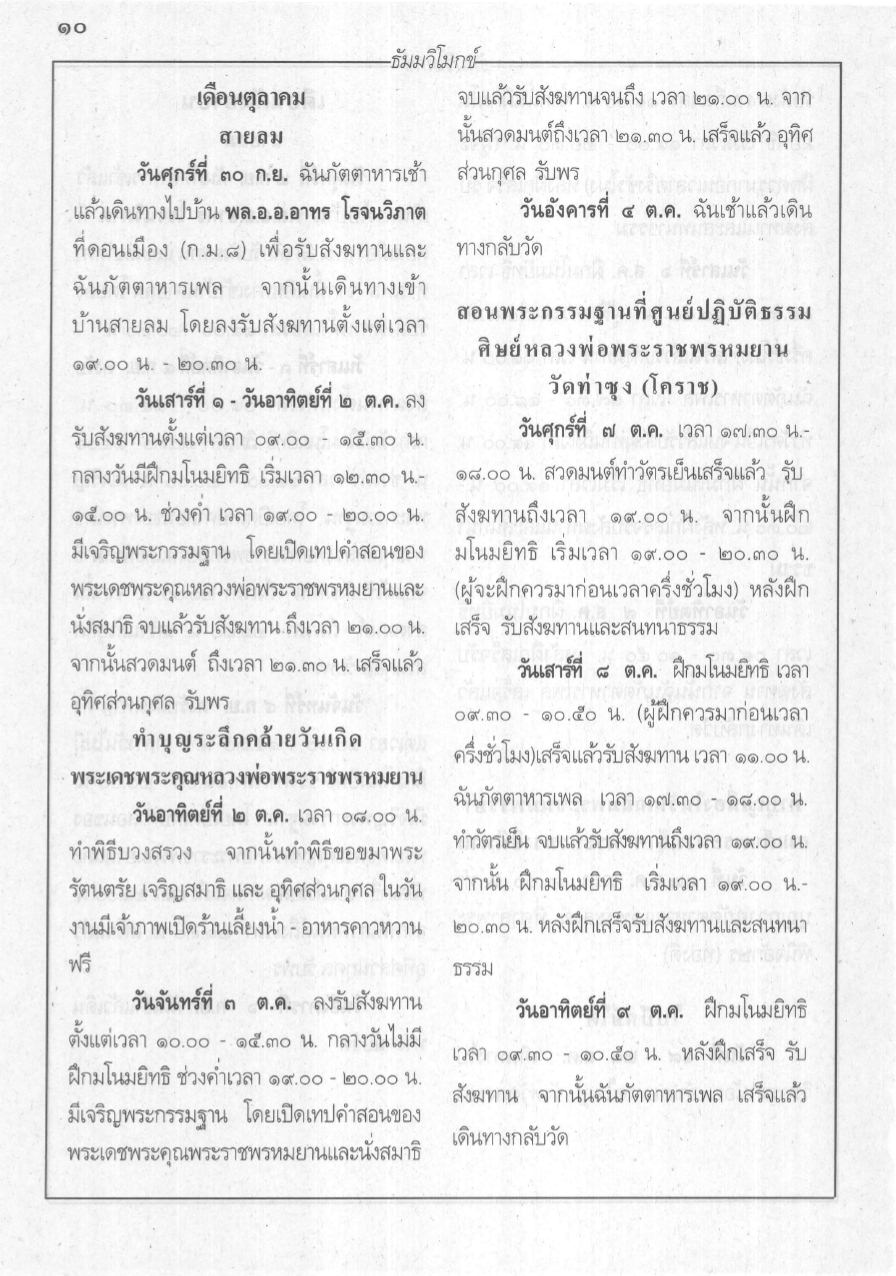 ๑๐
ธัมมวิโมกข์
เดือนตุลาคม
สายลม
วันศุกร์ที่ ๓๐ ก.ย. ฉันภัตตาหารเช้า
แล้วเดินทางไปบ้าน พล.อ.อ.อาทร โรจนวิภาต
ที่ดอนเมือง (ก.ม.๘) เพื่อรับสังฆทานและ
ฉันภัตตาหารเพล จากนั้นเดินทางเข้า
บ้านสายลม โดยลงรับสังฆทานตั้งแต่เวลา
๑๙.๐๐ น. - ๒๐.๓๐ น.
วันเสาร์ที่ ๑ - วันอาทิตย์ที่ ๒ ต.ค. ลง
รับสังฆทานตั้งแต่เวลา ๐๙.๐๐ - ๑๕.๓๐ น.
กลางวันมีฝึกมโนมยิทธิ เริ่มเวลา ๑๒.๓๐ น.-
๑๕.๐๐ น. ช่วงค่ำ เวลา ๑๙.๐๐ - ๒๐.๐๐ น.
มีเจริญพระกรรมฐาน โดยเปิดเทปคำสอนของ
พระเดชพระคุณหลวงพ่อพระราชพรหมยานและ
นั่งสมาธิ จบแล้วรับสังฆทาน ถึงเวลา ๒๑.๐๐ น.
จากนั้นสวดมนต์ ถึงเวลา ๒๑.๓๐ น. เสร็จแล้ว
อุทิศส่วนกุศล รับพร
ทำบุญระลึกคล้ายวันเกิด
พระเดชพระคุณหลวงพ่อพระราชพรหมยาน
วันอาทิตย์ที่ ๒ ต.ค. เวลา ๐๘.๐๐ น.
ทำพิธีบวงสรวง จากนั้นทำพิธีขอขมาพระ
รัตนตรัย เจริญสมาธิ และ อุทิศส่วนกุศล ในวัน
งานมีเจ้าภาพเปิดร้านเลี้ยงน้ำ - อาหารคาวหวาน
ฟรี
วันจันทร์ที่ ๓ ต.ค. ลงรับสังฆทาน
ตั้งแต่เวลา ๑๐.๐๐ - ๑๕.๓๐ น. กลางวันไม่มี
ฝึกมโนมยิทธิ ช่วงค่ำเวลา ๑๙.๐๐ - ๒๐.๐๐ น.
มีเจริญพระกรรมฐาน โดยเปิดเทปคำสอนของ
พระเดชพระคุณพระราชพรหมยานและนั่งสมาธิ
จบแล้วรับสังฆทานจนถึง เวลา ๒๑.๐๐ น. จาก
นั้นสวดมนต์ถึงเวลา ๒๑.๓๐ น. เสร็จแล้ว อุทิศ
ส่วนกุศล รับพร
วันอังคารที่ ๔ ต.ค. ฉันเช้าแล้วเดิน
ทางกลับวัด
สอนพระกรรมฐานที่ศูนย์ปฏิบัติธรรม
ศิษย์หลวงพ่อพระราชพรหมยาน
วัดท่าซุง (โคราช)
วันศุกร์ที่ ๗ ต.ค. เวลา ๑๗.๓๐ น.-
๑๘.๐๐ น. สวดมนต์ทำวัตรเย็นเสร็จแล้ว รับ
สังฆทานถึงเวลา ๑๙.๐๐ น. จากนั้นฝึก
มโนมยิทธิ เริ่มเวลา ๑๙.๐๐ - ๒๐.๓๐ น.
(ผู้จะฝึกควรมาก่อนเวลาครึ่งชั่วโมง) หลังฝึก
เสร็จ รับสังฆทานและสนทนาธรรม
วันเสาร์ที่ ๘ ต.ค. ฝึกมโนมยิทธิ เวลา
๐๙.๓๐ - ๑๐.๕๐ น. (ผู้ฝึกควรมาก่อนเวลา
ครึ่งชั่วโมง)เสร็จแล้วรับสังฆทาน เวลา ๑๑.๐๐ น.
ฉันภัตตาหารเพล เวลา ๑๗.๓๐ - ๑๘.๐๐ น.
ทำวัตรเย็น จบแล้วรับสังฆทานถึงเวลา ๑๙.๐๐ น.
จากนั้น ฝึกมโนมยิทธิ เริ่มเวลา ๑๙.๐๐ น.-
๒๐.๓๐ น. หลังฝึกเสร็จรับสังฆทานและสนทนา
ธรรม
วันอาทิตย์ที่ ๙ ต.ค. ฝึกมโนมยิทธิ
เวลา ๐๙.๓๐ - ๑๐.๕๐ น. หลังฝึกเสร็จ รับ
สังฆทาน จากนั้นฉันภัตตาหารเพล เสร็จแล้ว
เดินทางกลับวัด